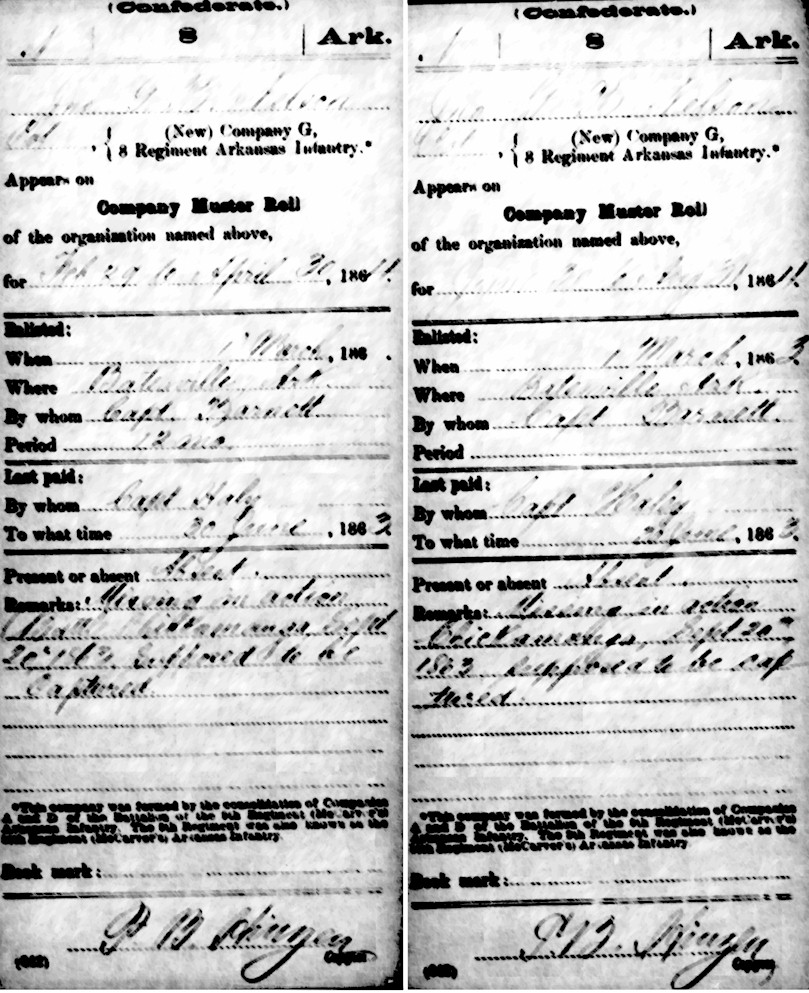 (Confederate.)
8 | Ark.
Nelson
(New) Company G,
8 Regiment Arkansas Infantry.*
Appears on
Company Muster Roll
of the organization named above,
for Feb 29 to April 30, 1864.
Enlisted:
When 1 March, 186 .
Where Batesville Ark
By whom Capt Barnett
Period 12 mo.
Last paid:
By whom Capt Haly
To what time 30 June, 1863.
Present or absent Absent.
Remarks: Missing in action
Battle Sept
20th 1863 Supposed to be
Captured
*This company was formed by the consolidation of Companies
A and D of the Battalion of the 8th Regiment (McCarver's)
Arkansas Infantry. The 8th Regiment was also known as the
Regiment (McCarver's) Arkansas Infantry
Book mark:
(642)
Copyist.
(Confederate.)
8 | Ark.
Nelson
(New) Company G,
8 Regiment Arkansas Infantry.*
Appears on
Company Muster Roll
of the organization named above,
for to Aug 31, 1864
Enlisted:
When 1 March, 1863
Where Batesville Ark
By whom Capt Barnett
Period
Last paid:
By whom Capt Haley
To what time June, 1863.
Present or absent Absent
Remarks: Missing in action
Chickamauga, Sept 20th
1863 supposed to be cap
tured
*This company was formed by the consolidation of Companies
A and D of the Battalion of the 8th Regiment (McCarver's)
Arkansas Infantry. The 8th Regiment was also known as the
Regiment (McCarver's) Arkansas Infantry
Book mark:
(642)
Copyist.